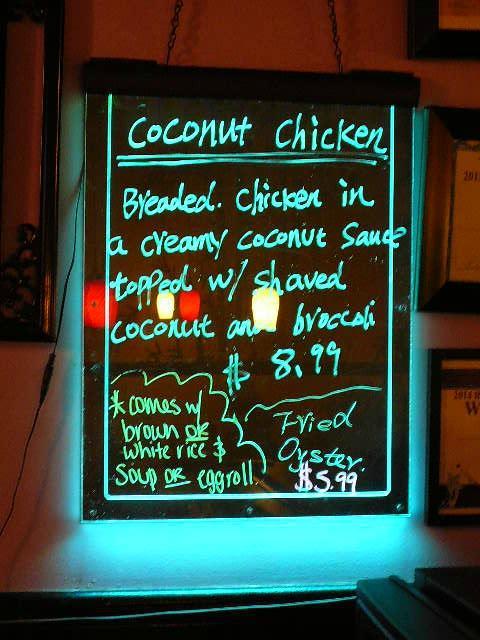 Coconut Chicken
Breaded. Chicken in
a creamy coconut sauce
topped w/ shaved
coconut and broccoli
$ 8.99
* comes w/
brown OR
white rice $
Soup OR eggroll
Fried
Oyster.
$5.99
201
2014
W